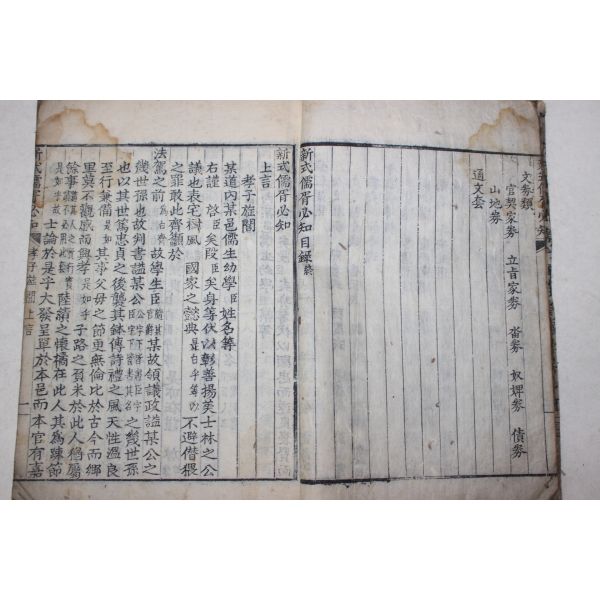 文券類
官契家券 立旨家券 畓券 奴婢券 債券
山地券
通文套
新式儒胥必知目錄終
新式儒胥必知
上言
孝子旌閭
某道內某邑儒生幼學臣姓名等
右謹 啓臣矣段臣矣身等伏以彰善揚美士林之公
議也表宅樹風 國家之懿典是白乎等以 不避僭猥
之罪敢此齊籲於
法駕之前 故學生臣某故領議政謚某公之
幾世孫也故判書謚某公之幾世孫
也以其世篤忠貞之後襲其鉢傳詩禮之風天性溫良
至行兼備是如乎其事父母之節更無倫比於古今而鄕
里莫不觀感而興孝是如乎子路之負米於此人猶屬
餘事陸績之懷橘在此人其爲疎節
士論於是乎大發呈單於本邑而本官有嘉
新式儒胥必知 孝子旌閭 上言 一